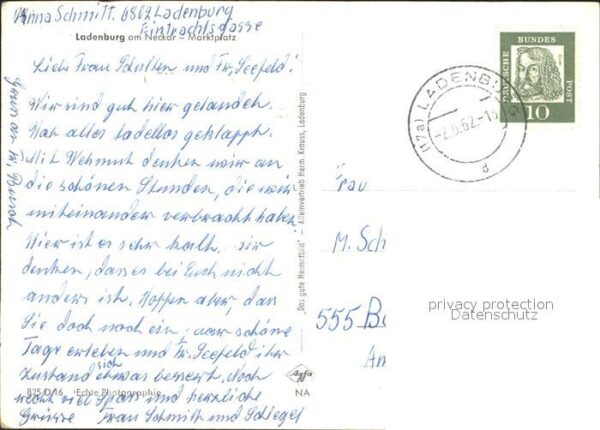 Anna Schmitt. 6802 Ladenburg
Eintrachtsgasse
Ladenburg am Neckar - Marktplatz
Liebe Frau Schulten und Fr. Seefeld!
Wir sind gut hier gelandet.
Hat alles tadellos geklappt.
Mit Wehmut denken wir an
die schönen Stunden, die wir
miteinander verbracht haben
Hier ist es sehr kalt. wir
denken, dass es bei Euch nicht
anders ist. Hoffen aber, dass
Sie doch noch ein paar schöne
Tage erleben und Fr. Seefeld ihr
Zustand sich etwas bessert. doch
recht viel Spass und herzliche
Grüsse Frau Schmitt und Schlegel
Gruss an Fr.
B25/0/16 Echte Photographie
"Das gute Heimatbild" - Alleinvertrieb Herm. Krauss, Ladenburg
Agfa
NA
DEUTSCHE BUNDESPOST
10
(17a) LADENBURG
-2.6.62.-15
d
Frau
M. Sch
555 Be
Am
privacy protection
Datenschutz